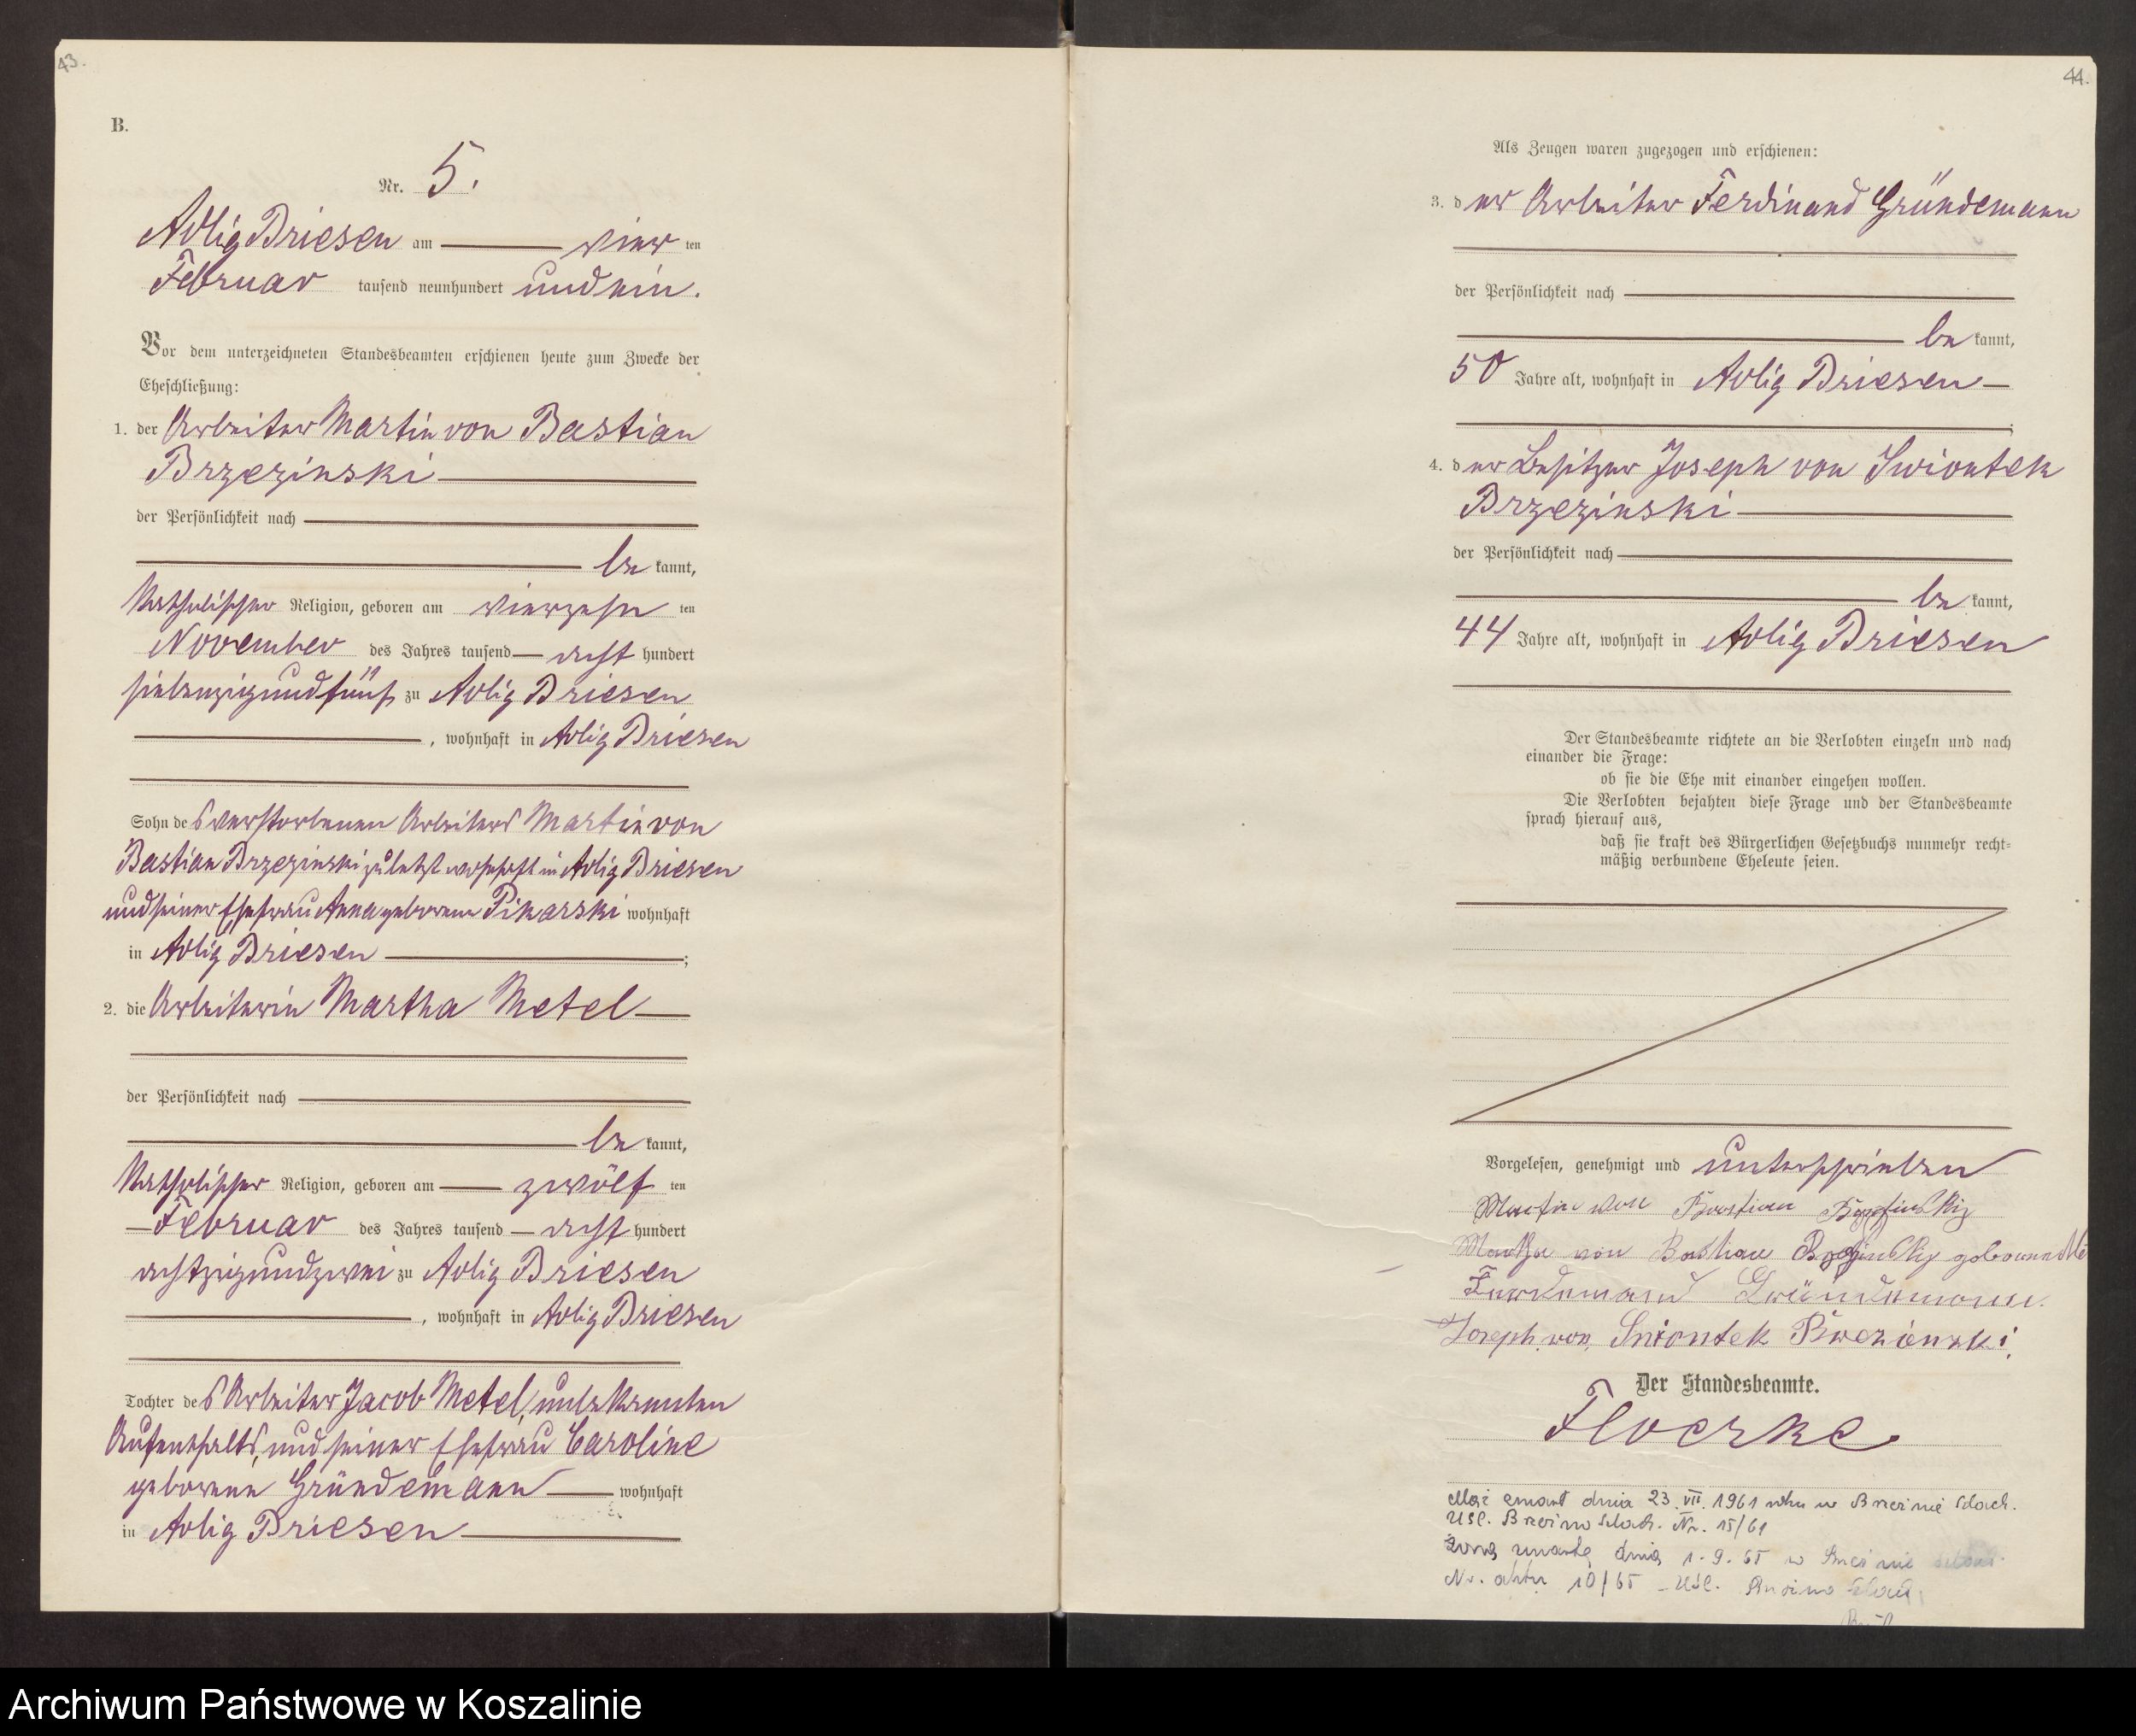 43.
B.
Nr. 5.
Adlig Briesen am vier ten
Februar tausend neunhundert und ein.
Vor dem unterzeichneten Standesbeamten erschienen heute zum Zwecke der
Eheschließung:
1. der Arbeiter Martin von Bastian
Brzezinski
der Persönlichkeit nach
be kannt,
katholischer Religion, geboren am vierzehn ten
November des Jahres tausend acht hundert
siebenzig und fünf zu Adlig Briesen
, wohnhaft in Adlig Briesen
Sohn des verstorbenen Arbeiters Martin von
Bastian Brzezinski zuletzt wohnhaft in Adlig Briesen
und seiner Ehefrau Anna geborene Pikarski wohnhaft
in Adlig Briesen ;
2. die Arbeiterin Martha Metel
der Persönlichkeit nach
be kannt,
katholischer Religion, geboren am zwölf ten
Februar des Jahres tausend acht hundert
achtzig und zwei zu Adlig Briesen
, wohnhaft in Adlig Briesen
Tochter des Arbeiter Jacob Metel, unbekannten
Aufenthalts, und seiner Ehefrau Caroline
geborene Gründemann wohnhaft
in Adlig Briesen
44.
Als Zeugen waren zugezogen und erschienen:
3. der Arbeiter Ferdinand Gründemann
der Persönlichkeit nach
be kannt,
50 Jahre alt, wohnhaft in Adlig Briesen
;
4. der Besitzer Joseph von Swiontek
Brzezinski
der Persönlichkeit nach
be kannt,
44 Jahre alt, wohnhaft in Adlig Briesen
Der Standesbeamte richtete an die Verlobten einzeln und nach
einander die Frage:
ob sie die Ehe mit einander eingehen wollen.
Die Verlobten bejahten diese Frage und der Standesbeamte
sprach hierauf aus,
daß sie kraft des Bürgerlichen Gesetzbuchs nunmehr recht-
mäßig verbundene Eheleute seien.
Vorgelesen, genehmigt und unterschrieben
Martin von Bastian
Martha von Bastian geborene Me
Gründemann.
Joseph von Swiontek
Der Standesbeamte.
Floerke
Mąż zmarł dnia 23.VII.1961 roku w Brzeźnie Szlach.
USC. Brzeźno Szlach. Nr. 15/61
Żona zmarła dnia 1.9.65 w Brzeźnie
Nr. aktu 10/65 - USC. Brzeźno Szlach.
Archiwum Państwowe w Koszalinie